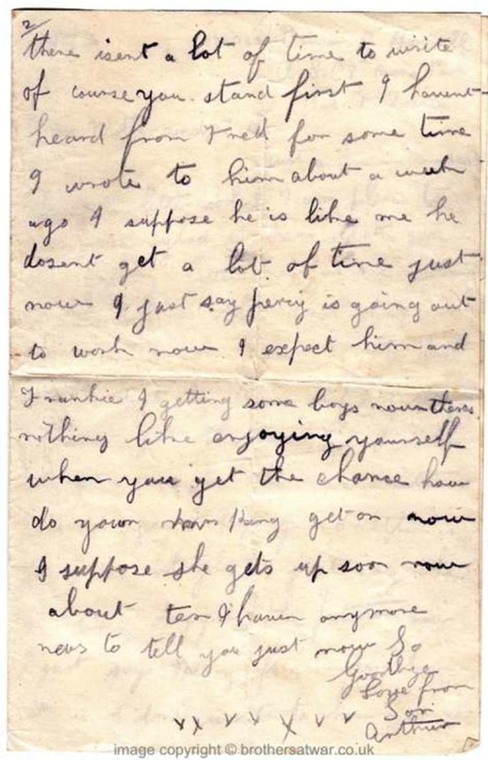 2/
there isent a lot of time to write
of course you stand first I havent
heard from Fred for some time
I wrote to him about a week
ago I suppose he is like me he
dosent get a lot of time just
now I just say percy is going out
to work now I expect him and
Frankie I getting some boys now theres
nothing like enjoying yourself
when you get the chance how
do your get on now
I suppose she gets up soon now
about ten I haven anymore
news to tell you just now So
Goodbye
Love from
Son
Arthur
image copyright © brothersatwar.co.uk